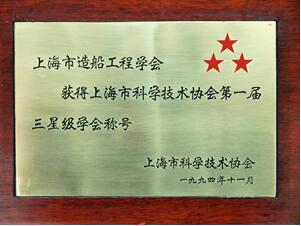 上海市造船工程学会
获得上海市科学技术协会第一届
三星级学会称号
上海市科学技术协会
一九九四年十一月